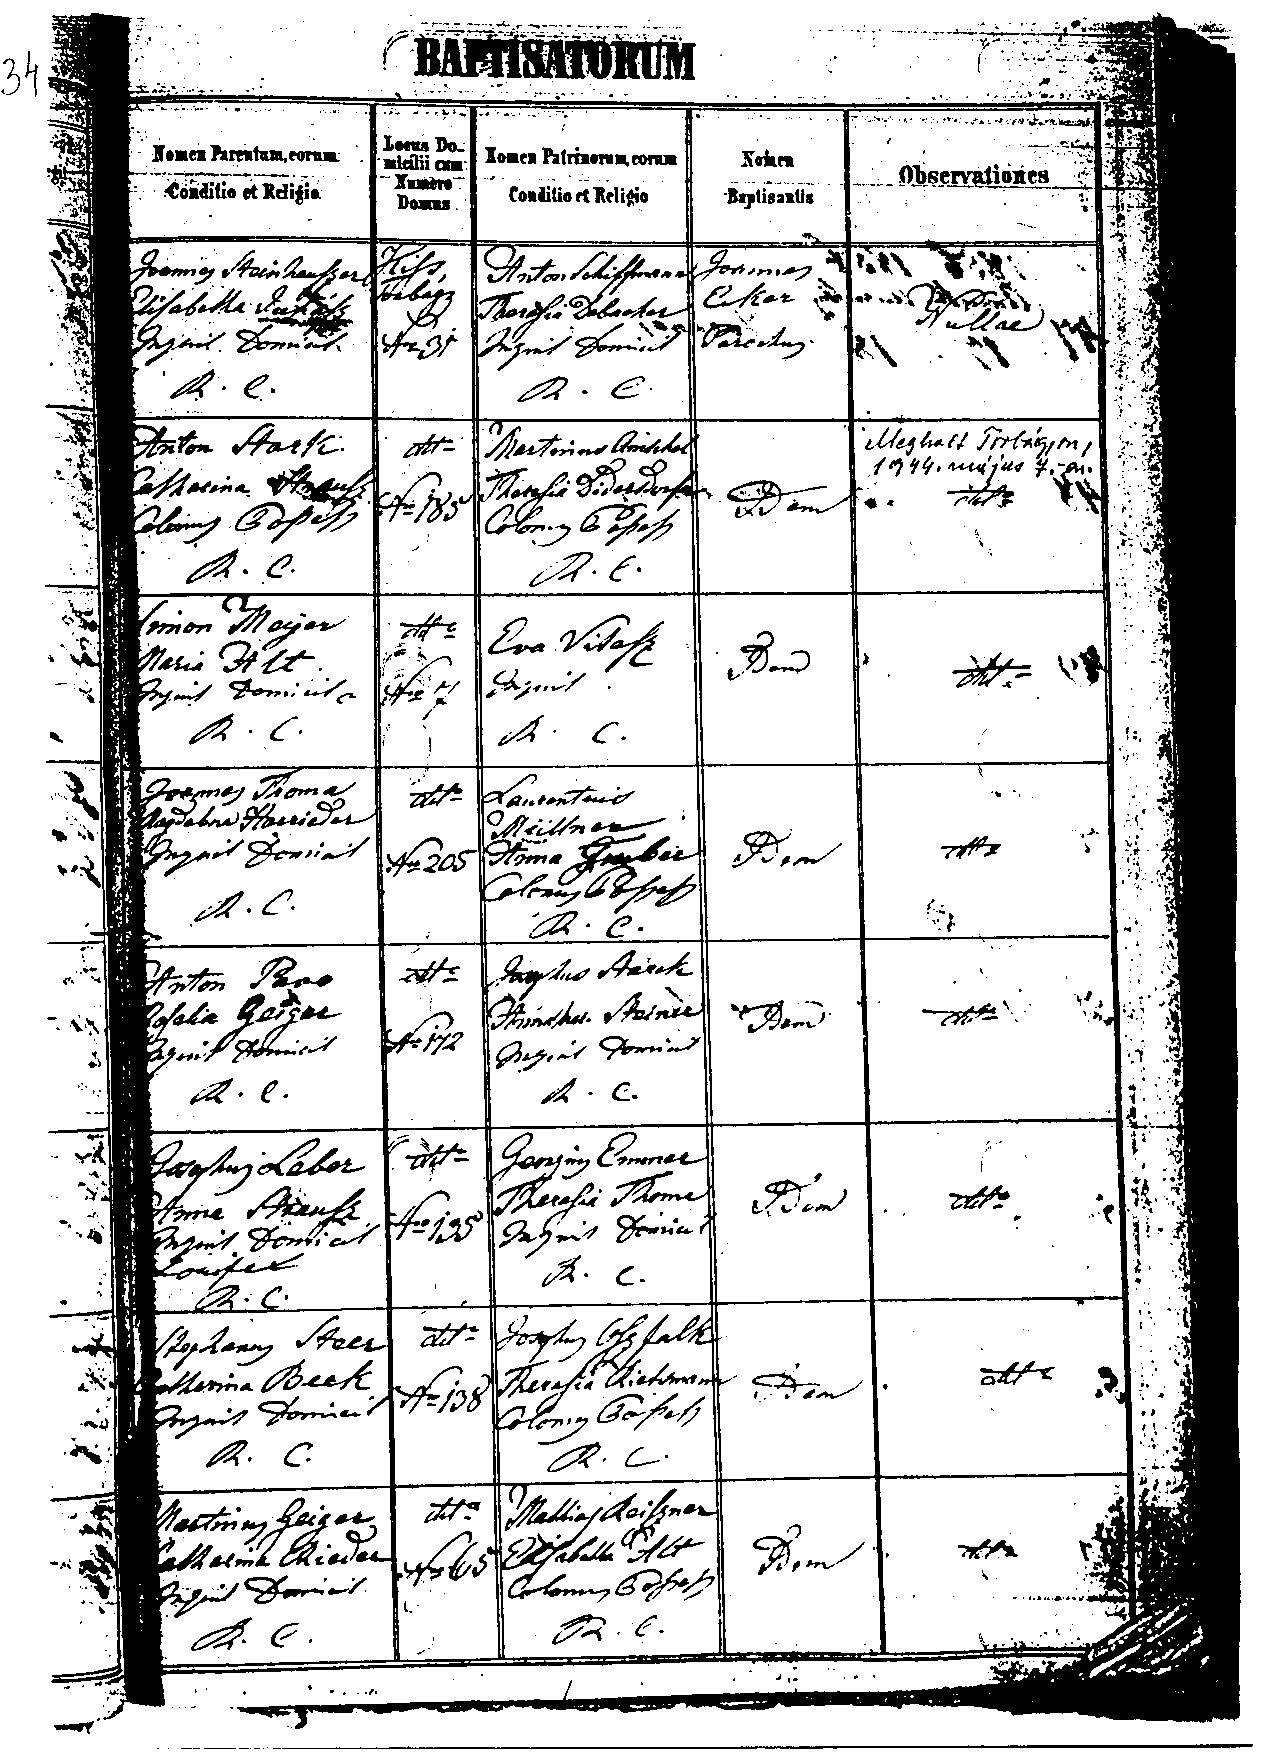 34
BAPTISATORUM
Nomen Parentum, eorum
Conditio et Religio
Locus Do-
micilii cum
Numero
Domus
Nomen Patrinorum, eorum
Conditio et Religio
Nomen
Baptisantis
Observationes
Joannes Steinhauszer
Elisabetha
Inquil. Domicil.
R. C.
Kiss
Torbágy
No 31
Anton Schiffmann
Theresia
Inquil Domicil
R. C.
Joannes
Eker
Parochus
Nullae
Anton Stark
Catharina Strausz
Colonus Possess
R. C.
dtto
No 185
Martinus
Theresia
Colonus Possess
R. C.
Idem
Meghalt Torbágyon,
1944. május 7.-én.
dtto
Simon Mayer
Maria Alt
Inquil Domicil
R. C.
dtto
No 7
Eva
Inquil
R. C.
Idem
dtto
Joannes Thoma
Magdalena
Inquil Domicil
R. C.
dtto
No 205
Laurentius
Meillner
Anna Gruber
Colonus Possess
R. C.
Idem
dtto
Anton
Rosalia Geiger
Inquil Domicil
R. C.
dtto
No 172
Josephus Starck
Steiner
Inquil Domicil
R. C.
Idem
dtto
Josephus Leber
Anna Strausz
Inquil Domicil
R. C.
dtto
No 135
Georgius Emmer
Theresia Thoma
Inquil Domicil
R. C.
Idem
dtto
Stephanus Steer
Catherina Beck
Inquil Domicil
R. C.
dtto
No 138
Josephus
Theresia
Colonus Possess
R. C.
Idem
dtto
Martinus Geiger
Catharina Rieder
Inquil Domicil
R. C.
dtto
No 65
Mathias Reiszner
Elisabetha Alt
Colonus Possess
R. C.
Idem
dtto